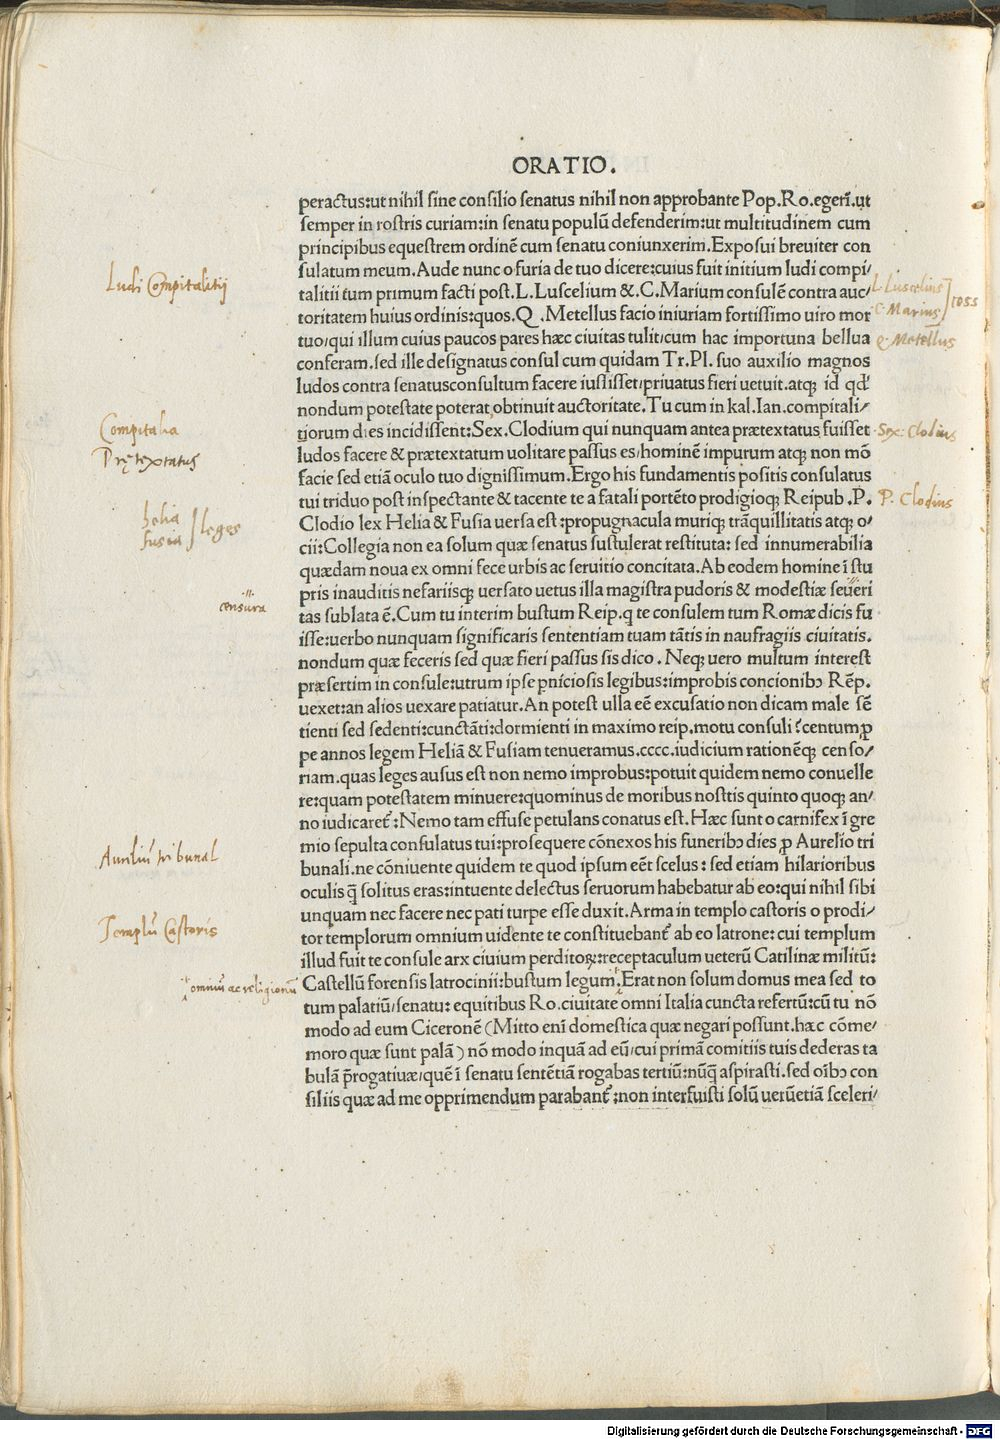 ORATIO.
peractus:ut nihil sine consilio senatus nihil non approbante Pop.Ro.egerī.ut
semper in rostris curiam:in senatu populū defenderim:ut multitudinem cum
principibus equestrem ordinē cum senatu coniunxerim.Exposui breuiter con
sulatum meum.Aude nunc o furia de tuo dicere:cuius fuit initium ludi compi/
Ludi Compitalitij
talitii tum primum facti post.L.Luscelium &.C.Marium consulē contra auc/
L. Luscelius
C. Marius
toritatem huius ordinis:quos.Q .Metellus facio iniuriam fortissimo uiro mor
Q. Metellus
tuo/qui illum cuius paucos pares hæc ciuitas tulit/cum hac importuna bellua
conferam.sed ille designatus consul cum quidam Tr.Pl.suo auxilio magnos
ludos contra senatusconsultum facere iussisset/priuatus fieri uetuit.atq; id qd'
nondum potestate poterat obtinuit auctoritate.Tu cum in kal.Ian.compitali/
Compitalia
tiorum dies incidissent:Sex.Clodium qui nunquam antea prætextatus fuisset
Sex. Clodius
Prętextatus
ludos facere & prætextatum uolitare passus es/hominē impurum atq; non mō
facie sed etiā oculo tuo dignissimum.Ergo his fundamentis positis consulatus
tui triduo post inspectante & tacente te a fatali portēto prodigioq; Reipub.P.
P. Clodius
helia
fusia
leges
Clodio lex Helia & Fusia uersa est:propugnacula muriq; trāquillitatis atq; o/
cii:Collegia non ea solum quæ senatus sustulerat restituta: sed innumerabilia
quædam noua ex omni fece urbis ac seruitio concitata.Ab eodem homine ī stu
pris inauditis nefariisq; uersato uetus illa magistra pudoris & modestiæ seueri
censura
tas sublata ē.Cum tu interim bustum Reip.q te consulem tum Romæ dicis fu
isse:uerbo nunquam significaris sententiam tuam tātis in naufragiis ciuitatis.
nondum quæ feceris sed quæ fieri passus sis dico. Neq; uero multum interest
præsertim in consule:utrum ipse ꝑniciosis legibus:improbis concionibꝫ Rēp.
uexet:an alios uexare patiatur.An potest ulla eē excusatio non dicam male sē
tienti sed sedenti:cunctāti:dormienti in maximo reip.motu consuli?centum ꝓ
pe annos legem Heliā & Fusiam tenueramus.cccc.iudicium rationēq; censo/
riam.quas leges ausus est non nemo improbus:potuit quidem nemo conuelle
re:quam potestatem minuere:quominus de moribus nostris quinto quoq; an/
no iudicaret':Nemo tam effuse petulans conatus est.Hæc sunt o carnifex ī gre
mio sepulta consulatus tui:prosequere cōnexos his funeribꝫ dies ꝓ Aurelio tri
Aureliū tribunal
bunali.ne cōniuente quidem te quod ipsum eēt scelus: sed etiam hilarioribus
oculis q̄ solitus eras:intuente delectus seruorum habebatur ab eo:qui nihil sibi
unquam nec facere nec pati turpe esse duxit.Arma in templo castoris o prodi/
Templū Castoris
tor templorum omnium uidente te constituebant' ab eo latrone: cui templum
illud fuit te consule arx ciuium perditoꝝ:receptaculum ueterū Catilinæ militū:
omniū ac religionū
Castellū forensis latrocinii:bustum legum.Erat non solum domus mea sed to
tum palatiū/senatu: equitibus Ro.ciuitate omni Italia cuncta refertū:cū tu nō
modo ad eum Ciceronē (Mitto enī domestica quæ negari possunt.hæc cōme/
moro quæ sunt palā) nō modo inquā ad eū/cui primā comitiis tuis dederas ta
bulā p̄rogatiuæ/quē ī senatu sentētiā rogabas tertiū:nūq̄ aspirasti.sed oībꝫ con
siliis quæ ad me opprimendum parabant':non interfuisti solū uerūetiā sceleri/
Digitalisierung gefördert durch die Deutsche Forschungsgemeinschaft - DFG